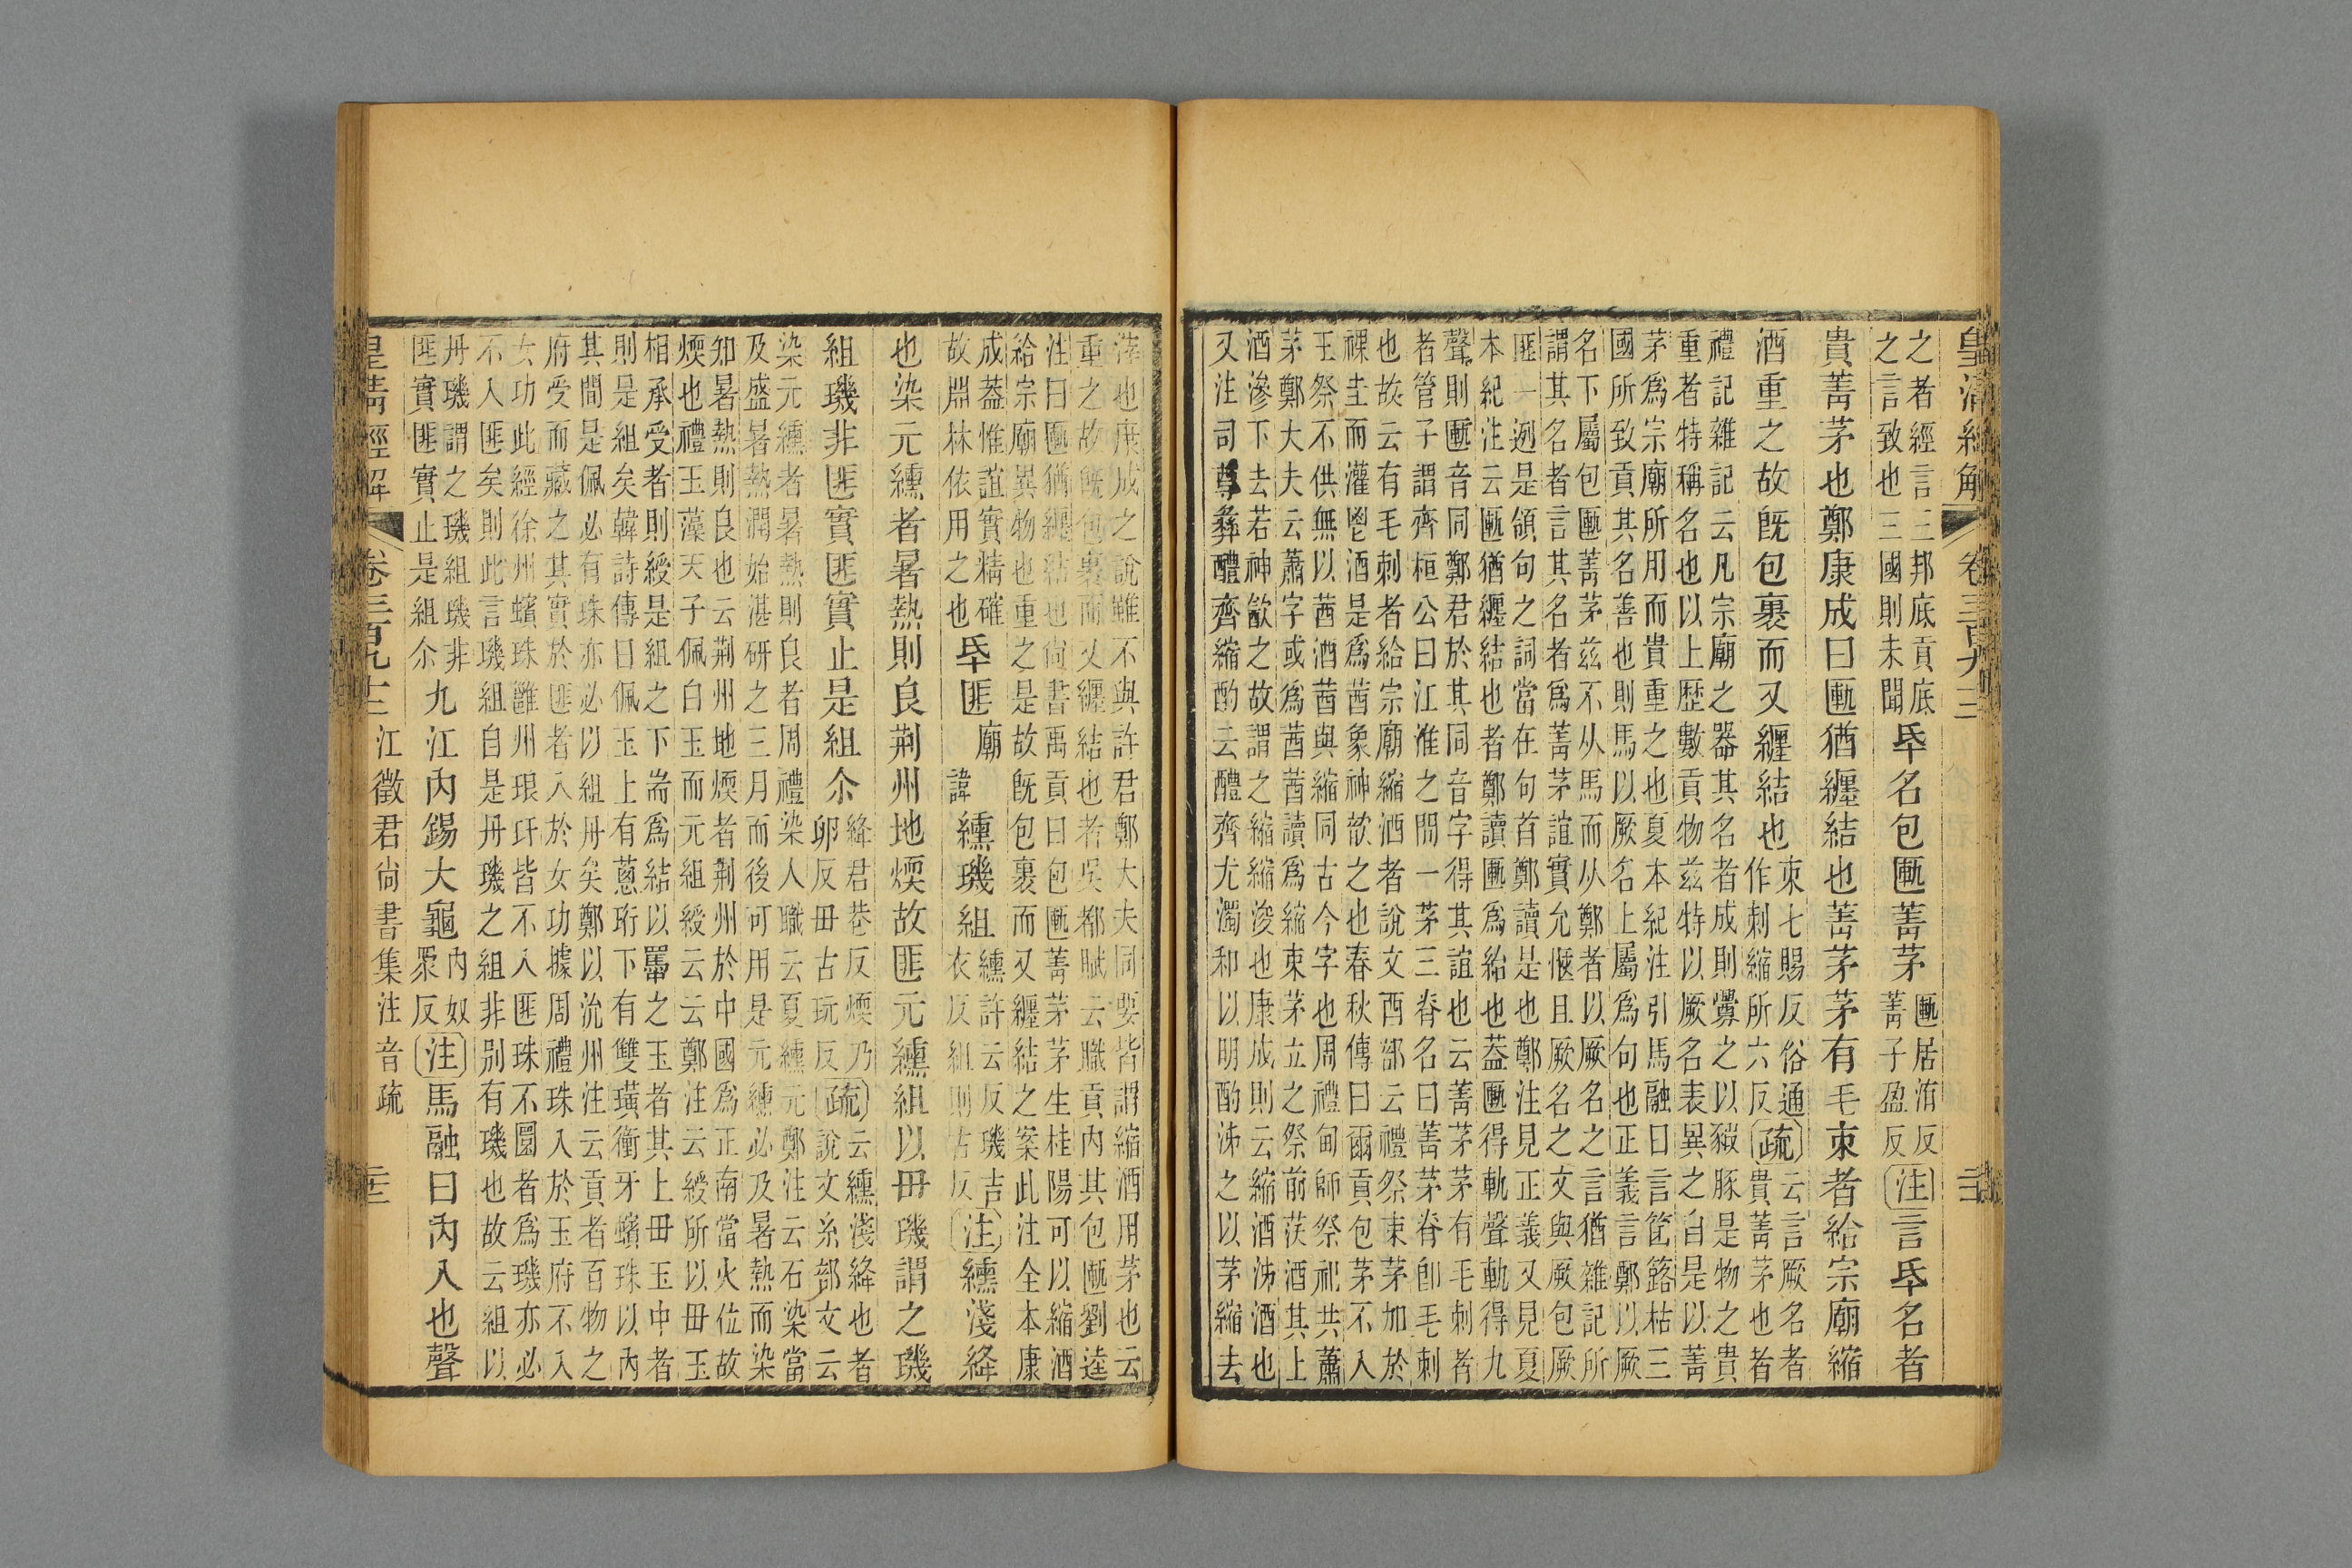 皇清經解 卷三百九十三
之者經言三邦底貢底
之言致也三國則未聞
氒名包匭菁茅
匭居洧反
菁子盈反
注 言氒名者
貴菁茅也鄭康成曰匭猶纏結也菁茅茅有毛朿者給宗廟縮
酒重之故旣包裹而又纏結也
朿七賜反俗通
作刺縮所六反
疏
云言厥名者
貴菁茅也者
禮記雜記云凡宗廟之器其名者成則釁之以豭豚是物之貴
重者特稱名也以上歷數貢物兹特以厥名表異之自是以菁
茅爲宗廟所用而貴重之也夏本紀注引馬融曰言箘簵枯三
國所致貢其名善也則馬以厥名上屬爲句也正義言鄭以厥
名下屬包匭菁茅兹不从馬而从鄭者以厥名之言猶雜記所
謂其名者言其名者爲菁茅誼實允愜且厥名之文與厥包厥
匪一迾是領句之詞當在句首鄭讀是也鄭注見正義又見夏
本紀注云匭猶纏結也者鄭讀匭爲也蓋匭得軌聲軌得九
聲則匭音同鄭君於其同音字得其誼也云菁茅茅有毛刺者
者管子謂齊桓公曰江淮之間一茅三脊名曰菁茅茅脊卽毛刺
也故云有毛刺者給宗廟縮酒者說文酉部云禮祭束茅加於
祼圭而灌鬯酒是爲莤象神歆之也春秋傳曰爾貢包茅不入
王祭不供無以莤酒莤與縮同古今字也周禮甸師祭祀共蕭
茅鄭大夫云蕭字或爲莤莤讀爲縮束茅立之祭前茨酒其上
酒滲下去若神歆之故謂之縮縮浚也康成則云縮酒泲酒也
又注司尊彝醴齊縮酌云醴齊尤濁和以明酌泲之以茅縮去
滓也康成之說雖不與許君鄭大夫同要皆謂縮酒用茅也云
重之故旣包裹而又纏結也者吳都賦云職貢內其包匭劉逵
注曰匭猶纏結也尙書禹貢曰包匭菁茅茅生桂陽可以縮酒
給宗廟異物也重之是故旣包裹而又纏結之案此注全本康
成蓋惟誼實精確
故淵林依用之也
氒匪
廟
諱
纁璣組
纁許云反璣吉
衣反組則古反
注 纁淺絳
也染元纁者暑熱則良荆州地煗故匪元纁組以毌璣謂之璣
組璣非匪實匪實止是組尒
絳君巷反煗乃
卵反毌古玩反
疏
云纁淺絳也者
說文糸部文云
染元纁者暑熱則良者周禮染人職云夏纁元鄭注云石染當
及盛暑熱潤始湛研之三月而後可用是元纁必及暑熱而染
知暑熱則良也云荆州地煗者荆州於中國爲正南當火位故
煗也禮玉藻天子佩白玉而元組綬云云鄭注云綬所以毌玉
相承受者則綬是組之下耑爲結以屬之玉者其上毌玉中者
則是組矣韓詩傳曰佩玉上有蔥珩下有雙璜衡牙蠙珠以內
其間是佩必有珠亦必以組毌矣鄭以沇州注云貢者百物之
府受而藏之其實於匪者入於女功據周禮珠入於玉府不入
女功此經徐州蠙珠雝州琅玕皆不入匪珠不圜者爲璣亦必
不入匪矣則此言璣組自是毌璣之組非别有璣也故云組以
毌璣謂之璣組璣非
匪實匪實止是組尒
九江內錫大龜
內奴
眾反
注 馬融曰內入也聲
皇清經解 卷三百九十三 江徵君尙書集注音疏